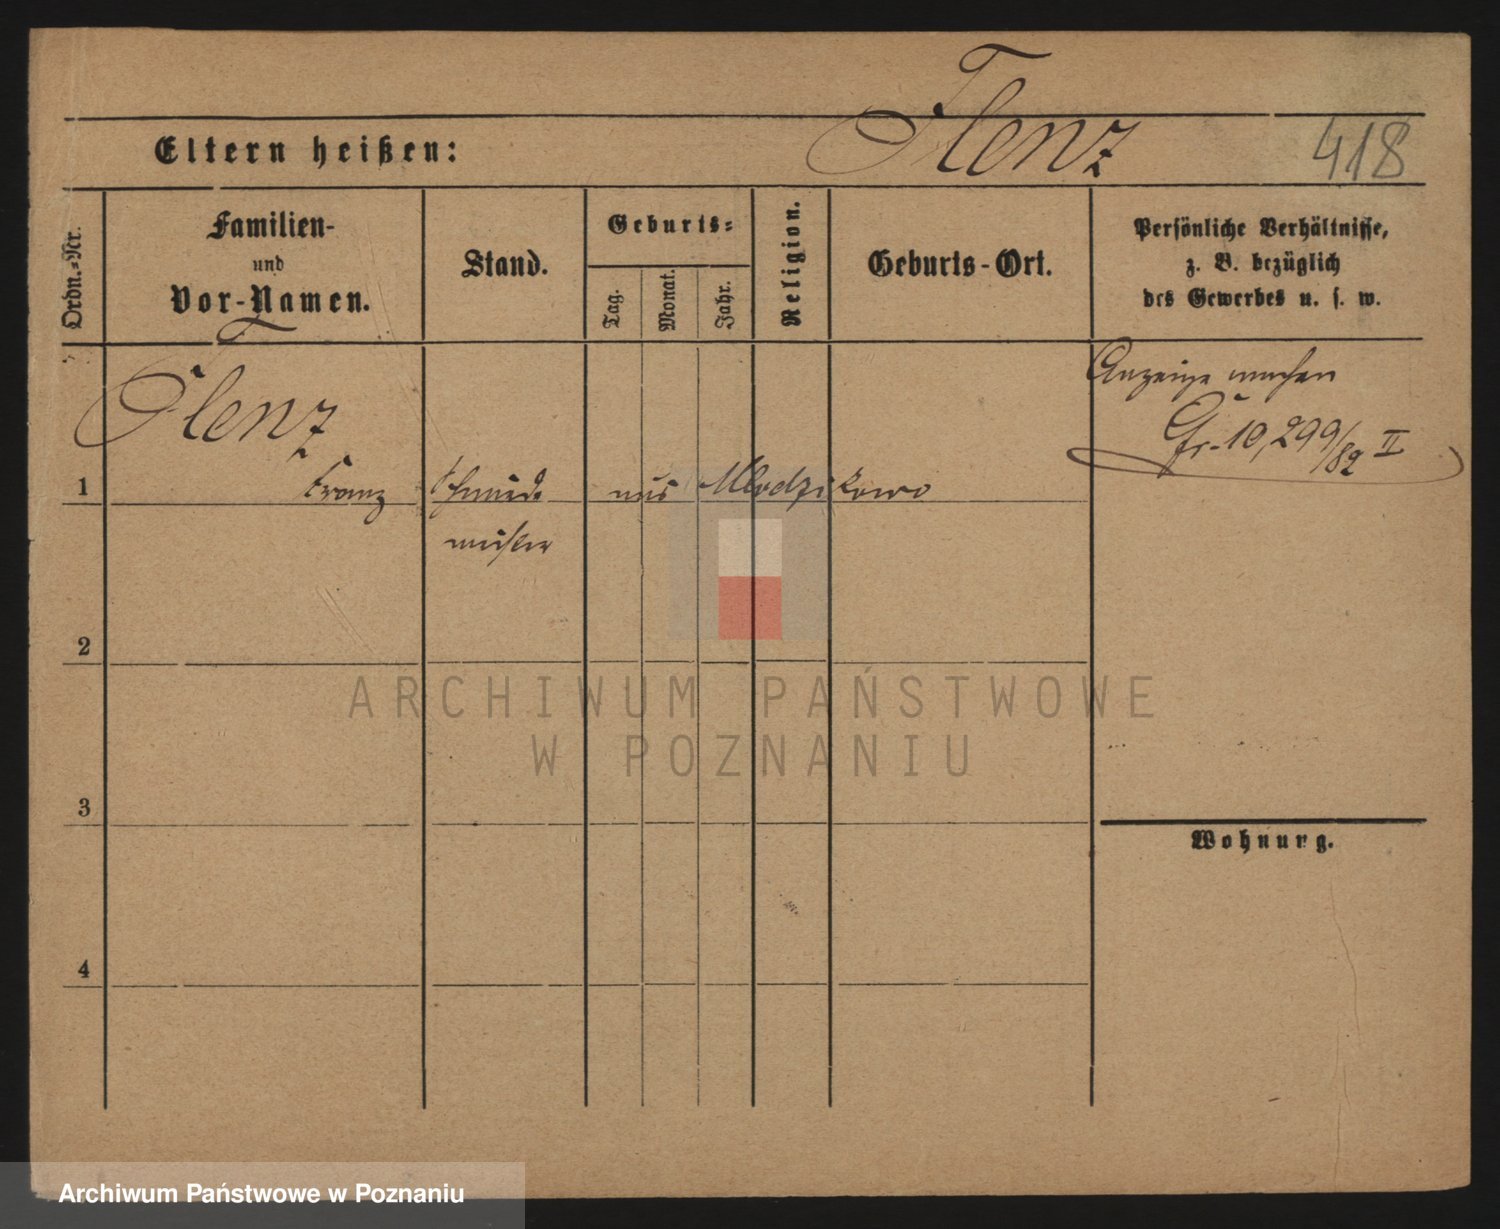 Flenz
418
Eltern heißen:
Ordn.-Nr.
Familien-
und
Vor-Namen.
Stand.
Geburts-
Tag.
Monat.
Jahr.
Religion.
Geburts-Ort.
Persönliche Verhältnisse,
z. B. bezüglich
des Gewerbes u. s. w.
Flenz
Anzeige machen
10,299/82 II
1
Franz
Schmiede
aus Mlodzikowo
meister
2
3
Wohnung.
4
ARCHIWUM PAŃSTWOWE
W POZNANIU
Archiwum Państwowe w Poznaniu